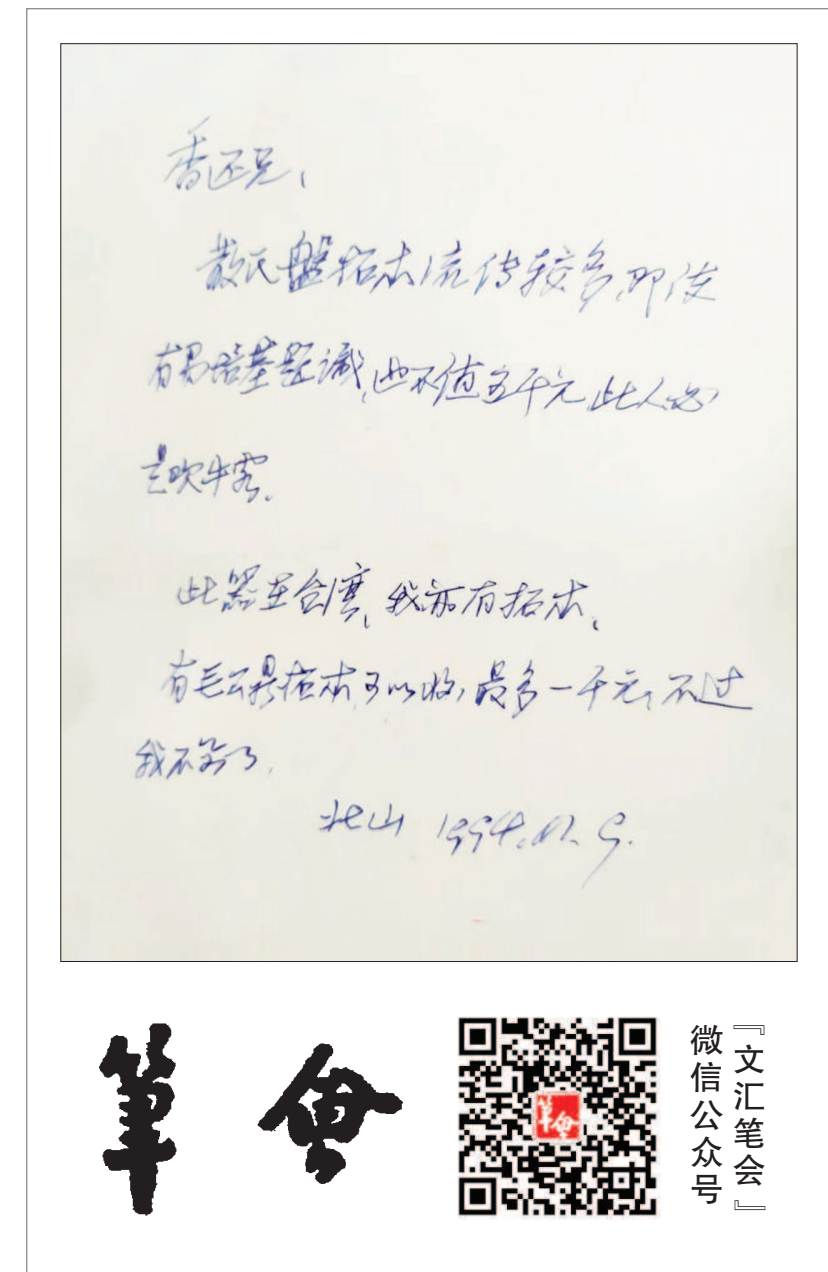 香还兄、
散氏盘拓本流传较多,即使
有易培基题识,也不值五千元,此人必
是吹牛客。
此器在台湾、我亦有拓本、
有毛公鼎拓本可以收,最多一千元、不过
我不写了。
北山 1994.12.9.
筆會
『文汇笔会』
微信公众号
筆會